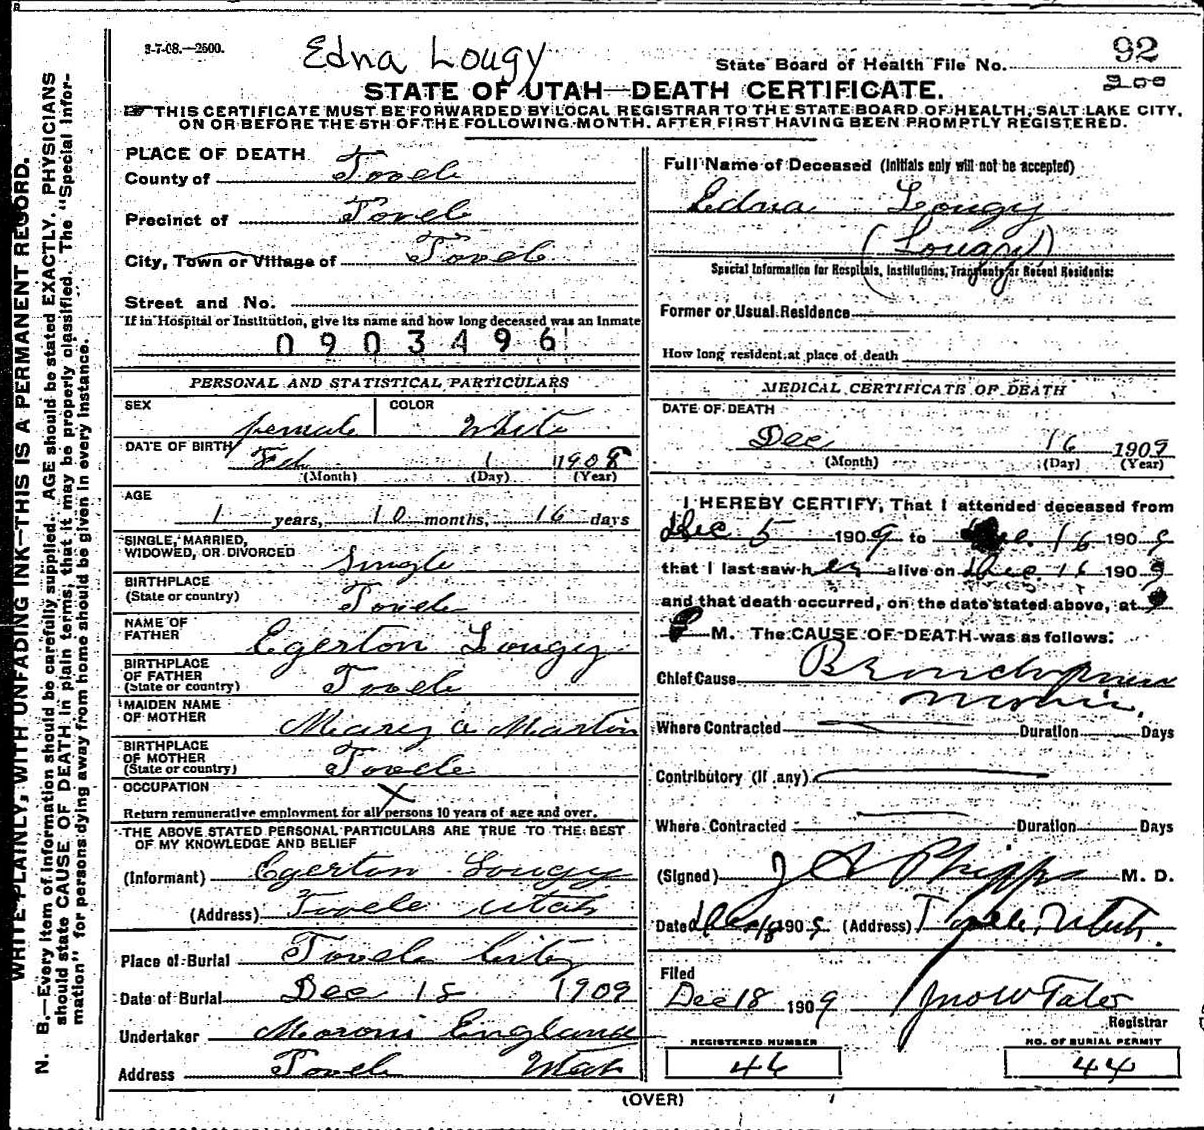 3-7-08.—2500.
Edna Lougy
State Board of Health File No. 92
200
STATE OF UTAH—DEATH CERTIFICATE.
THIS CERTIFICATE MUST BE FORWARDED BY LOCAL REGISTRAR TO THE STATE BOARD OF HEALTH, SALT LAKE CITY,
ON OR BEFORE THE 5TH OF THE FOLLOWING MONTH, AFTER FIRST HAVING BEEN PROMPTLY REGISTERED.
WRITE PLAINLY, WITH UNFADING INK—THIS IS A PERMANENT RECORD.
N. B.—Every item of information should be carefully supplied. AGE should be stated EXACTLY. PHYSICIANS
should state CAUSE OF DEATH in plain terms, that it may be properly classified. The "Special Infor-
mation" for persons dying away from home should be given in every instance.
PLACE OF DEATH
County of Tooele
Precinct of Tooele
City, Town or Village of Tooele
Street and No.
If in Hospital or Institution, give its name and how long deceased was an Inmate
0903496
PERSONAL AND STATISTICAL PARTICULARS
SEX female COLOR White
DATE OF BIRTH Feb 1 1908
(Month) (Day) (Year)
AGE
1 years, 10 months, 16 days
SINGLE, MARRIED,
WIDOWED, OR DIVORCED Single
BIRTHPLACE
(State or country) Tooele
NAME OF
FATHER Egerton Lougy
BIRTHPLACE
OF FATHER
(State or country) Tooele
MAIDEN NAME
OF MOTHER Mary A Martin
BIRTHPLACE
OF MOTHER
(State or country) Tooele
OCCUPATION X
Return remunerative employment for all persons 10 years of age and over.
THE ABOVE STATED PERSONAL PARTICULARS ARE TRUE TO THE BEST
OF MY KNOWLEDGE AND BELIEF
(Informant) Egerton Lougy
(Address) Tooele Utah
Place of Burial Tooele City
Date of Burial Dec 18 1909
Undertaker Moroni England
Address Tooele Utah
Full Name of Deceased (Initials only will not be accepted)
Edna Lougy
(Lougy)
Special Information for Hospitals, Institutions, Transients or Recent Residents:
Former or Usual Residence
How long resident at place of death
MEDICAL CERTIFICATE OF DEATH
DATE OF DEATH
Dec 16 1909
(Month) (Day) (Year)
I HEREBY CERTIFY, That I attended deceased from
Dec 5 1909 to Dec. 16 1909
that I last saw her alive on Dec. 16 1909
and that death occurred, on the date stated above, at
P M. The CAUSE OF DEATH was as follows:
Chief Cause Bronchopneu
monia.
Where Contracted Duration Days
Contributory (if any)
Where Contracted Duration Days
(Signed) J A Phipps M. D.
Dated Dec 18 1909 (Address) Tooele, Utah.
Filed
Dec 18 1909 Jno W Tate
Registrar
REGISTERED NUMBER
46
NO. OF BURIAL PERMIT
44
(OVER)